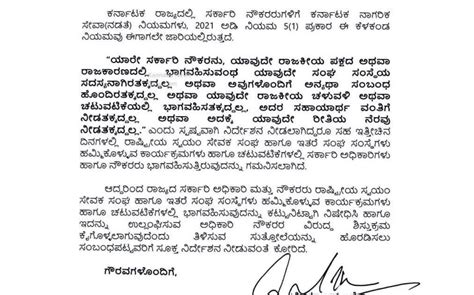 ಕರ್ನಾಟಕ ರಾಜ್ಯದಲ್ಲಿ ಸರ್ಕಾರಿ ನೌಕರರುಗಳಿಗೆ ಕರ್ನಾಟಕ ನಾಗರಿಕ
ಸೇವಾ(ನಡತೆ) ನಿಯಮಗಳು, 2021 ಅಡಿ ನಿಯಮ 5(1) ಪ್ರಕಾರ ಈ ಕೆಳಕಂಡ
ನಿಯಮವು ಈಗಾಗಲೇ ಜಾರಿಯಲ್ಲಿರುತ್ತದೆ.
"ಯಾರೇ ಸರ್ಕಾರಿ ನೌಕರನು, ಯಾವುದೇ ರಾಜಕೀಯ ಪಕ್ಷದ ಅಥವಾ
ರಾಜಕಾರಣದಲ್ಲಿ ಭಾಗವಹಿಸುವಂಥ ಯಾವುದೇ ಸಂಘ ಸಂಸ್ಥೆಯ
ಸದಸ್ಯನಾಗಿರತಕ್ಕದ್ದಲ್ಲ ಅಥವಾ ಅವುಗಳೊಂದಿಗೆ ಅನ್ಯಥಾ ಸಂಬಂಧ
ಹೊಂದಿರತಕ್ಕದ್ದಲ್ಲ ಅಥವಾ ಯಾವುದೇ ರಾಜಕೀಯ ಚಳುವಳಿ ಅಥವಾ
ಚಟುವಟಿಕೆಯಲ್ಲಿ ಭಾಗವಹಿಸತಕ್ಕದ್ದಲ್ಲ, ಅದರ ಸಹಾಯಾರ್ಥ ವಂತಿಗೆ
ನೀಡತಕ್ಕದ್ದಲ್ಲ ಅಥವಾ ಅದಕ್ಕೆ ಯಾವುದೇ ರೀತಿಯ ನೆರವು
ನೀಡತಕ್ಕದ್ದಲ್ಲ." ಎಂದು ಸ್ಪಷ್ಟವಾಗಿ ನಿರ್ದೇಶನ ನೀಡಲಾಗಿದ್ದರೂ ಸಹ ಇತ್ತೀಚಿನ
ದಿನಗಳಲ್ಲಿ ರಾಷ್ಟ್ರೀಯ ಸ್ವಯಂ ಸೇವಕ ಸಂಘ ಹಾಗೂ ಇತರೆ ಸಂಘ ಸಂಸ್ಥೆಗಳು
ಹಮ್ಮಿಕೊಳ್ಳುವ ಕಾರ್ಯಕ್ರಮಗಳು ಹಾಗೂ ಚಟುವಟಿಕೆಗಳಲ್ಲಿ ಸರ್ಕಾರಿ ಅಧಿಕಾರಿಗಳು
ಹಾಗೂ ನೌಕರರು ಭಾಗವಹಿಸುತ್ತಿರುವುದನ್ನು ಗಮನಿಸಲಾಗಿದೆ.
ಆದ್ದರಿಂದ ರಾಜ್ಯದ ಸರ್ಕಾರಿ ಅಧಿಕಾರಿ ಮತ್ತು ನೌಕರರು ರಾಷ್ಟ್ರೀಯ ಸ್ವಯಂ
ಸೇವಕ ಸಂಘ ಹಾಗೂ ಇತರೆ ಸಂಘ ಸಂಸ್ಥೆಗಳು ಹಮ್ಮಿಕೊಳ್ಳುವ ಕಾರ್ಯಕ್ರಮಗಳು
ಹಾಗೂ ಚಟುವಟಿಕೆಗಳಲ್ಲಿ ಭಾಗವಹಿಸುವುದನ್ನು ಕಟ್ಟುನಿಟ್ಟಾಗಿ ನಿಷೇಧಿಸಿ ಹಾಗೂ
ಇದನ್ನು ಉಲ್ಲಂಘಿಸುವ ಅಧಿಕಾರಿ ನೌಕರರ ವಿರುದ್ಧ ಶಿಸ್ತುಕ್ರಮ
ಕೈಗೊಳ್ಳಲಾಗುವುದೆಂದು ತಿಳಿಸುವ ಸುತ್ತೋಲೆಯನ್ನು ಹೊರಡಿಸಲು
ಸಂಬಂಧಪಟ್ಟವರಿಗೆ ಸೂಕ್ತ ನಿರ್ದೇಶನ ನೀಡುವಂತೆ ಕೋರಿದೆ.
ಗೌರವಗಳೊಂದಿಗೆ,